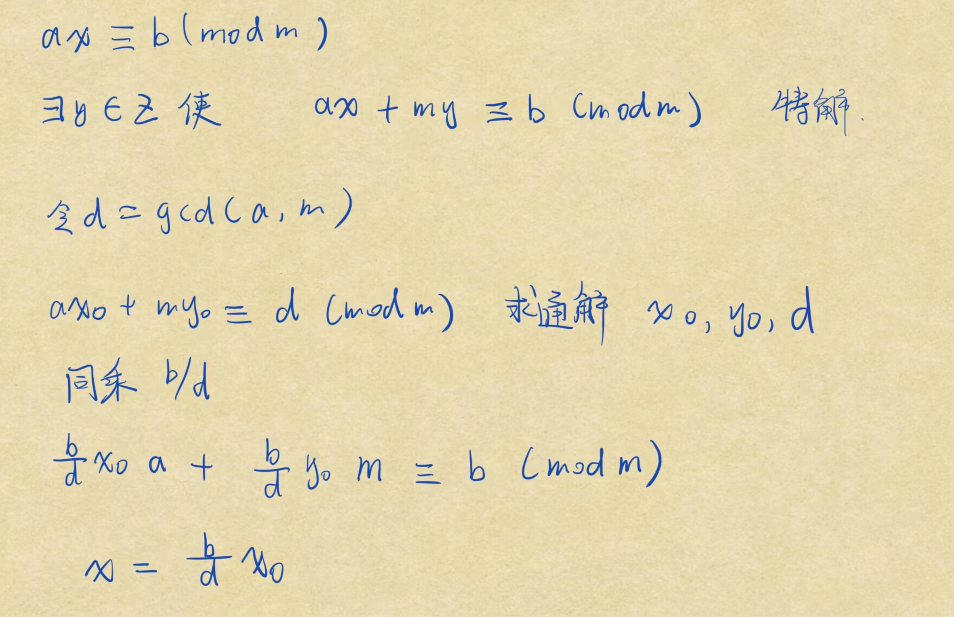 ax ≡ b (mod m)
∃y ∈ Z 使 ax + my ≡ b (mod m) 特解.
令 d = gcd(a, m)
ax₀ + my₀ ≡ d (mod m) 求通解 x₀, y₀, d
同乘 b/d
b/d x₀ a + b/d y₀ m ≡ b (mod m)
x = b/d x₀